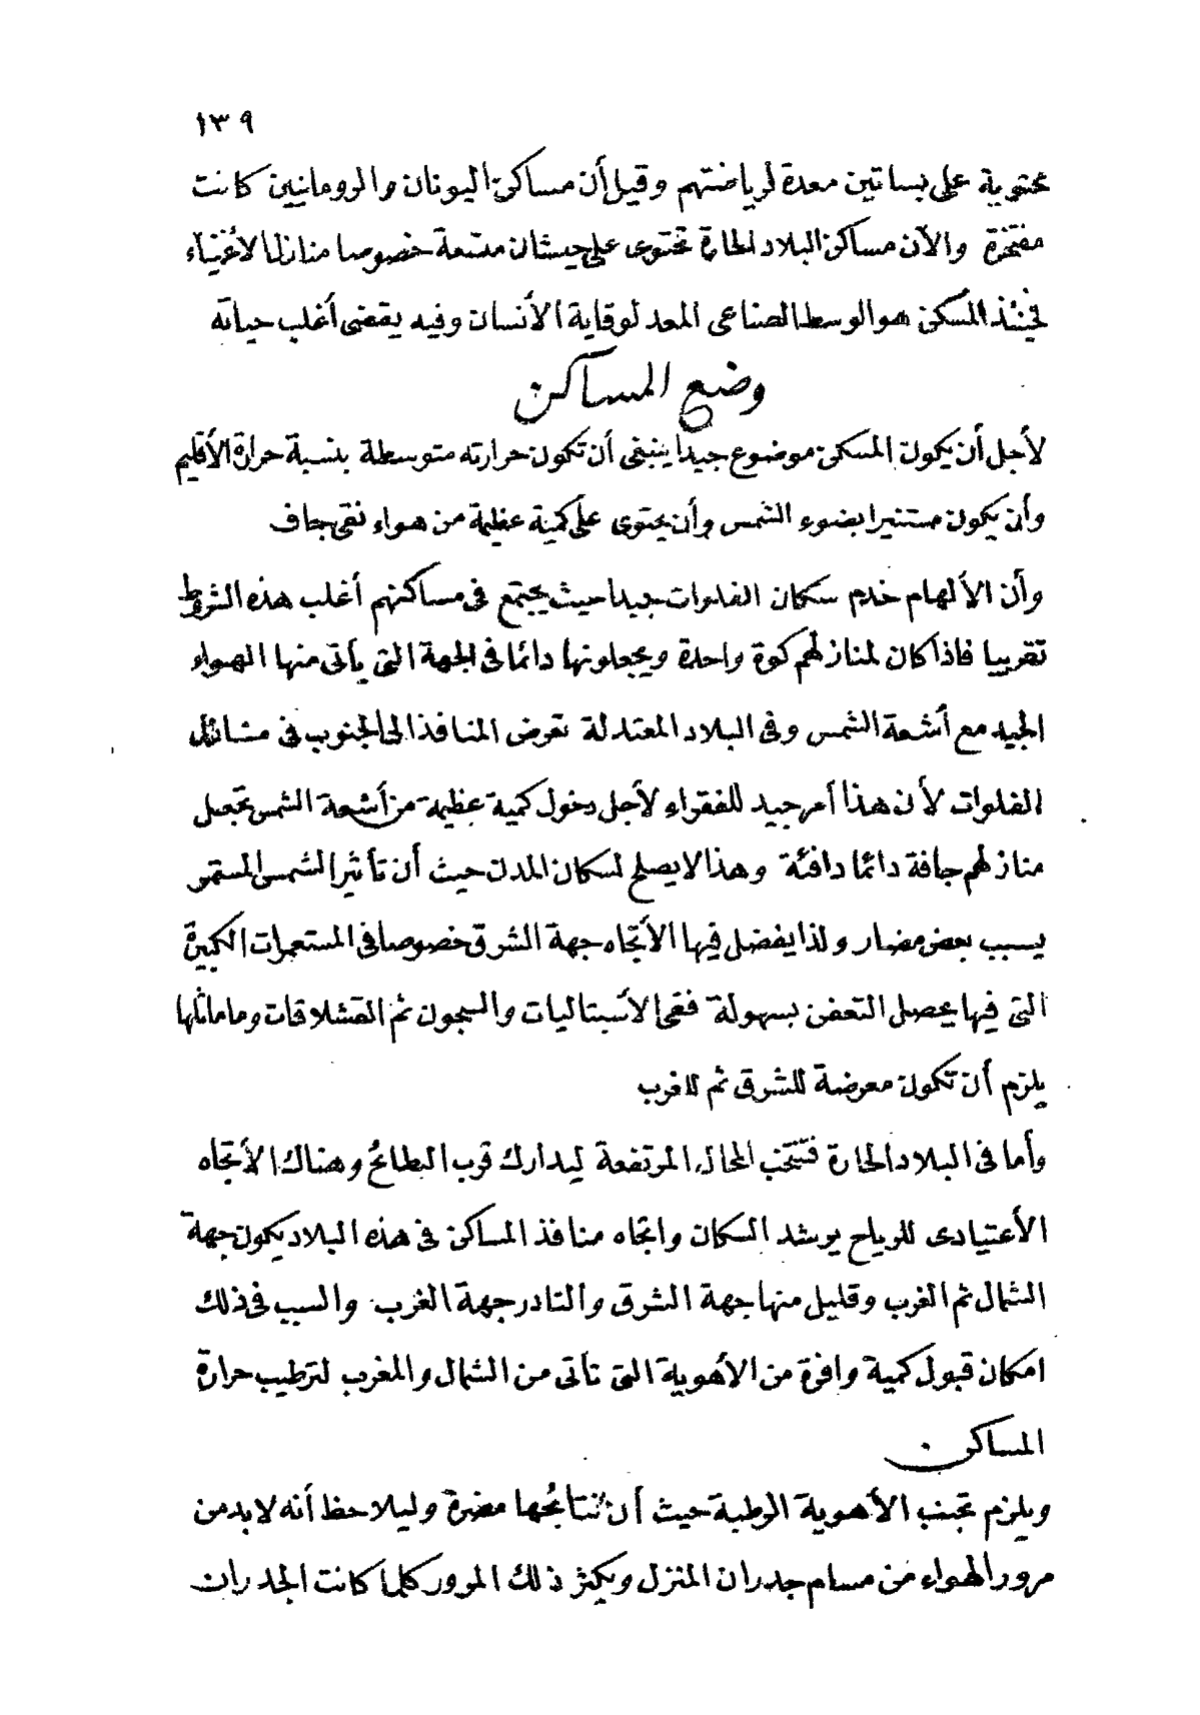 ١٣٩
محتوية على بساتين معدة لرياضتهم وقيل أن مساكن اليونان والرومانيين كانت
مفتخرة والآن مساكن البلاد الحارة تحتوى على حيشان متسعة خصوصا منازل الأغنياء
فحينئذ المسكن هو الوسط الصناعى المعد لوقاية الأنسان وفيه يقضى أغلب حياته
وضع المساكن
لأجل أن يكون المسكن موضوع جيدا ينبغى أن تكون حرارته متوسطة بنسبة حرارة الأقليم
وأن يكون مستنيرا بضوء الشمس وأن يحتوى على كمية عظيمة من هواء نقى جاف
وأن الألهام خدم سكان الفلوات جيدا حيث يجتمع فى مساكنهم أغلب هذه الشروط
تقريبا فاذا كان لمنازلهم كوة واحدة ويجعلونها دائما فى الجهة التى يأتى منها الهواء
الجيد مع أشعة الشمس وفى البلاد المعتدلة تعرض المنافذ الى الجنوب فى مشائل
الفلوات لأن هذا أمر جيد للفقراء لأجل دخول كمية عظيمة من أشعة الشمس تجعل
منازلهم جافة دائما دافئة وهذا لا يصلح لسكان المدن حيث أن تأثير الشمس المستمر
يسبب بعض مضار ولذا يفضل فيها الأتجاه جهة الشرق خصوصا فى المستعمرات الكبيرة
التى فيها يحصل التعفن بسهولة ففى الأسبتاليات والسجون ثم القشلاقات وما ماثلها
يلزم أن تكون معرضة للشرق ثم للغرب
وأما فى البلاد الحارة فتنتخب المحال المرتفعة ليدارك قرب البطائح وهناك الأتجاه
الأعتيادى للرياح يرشد السكان واتجاه منافذ المساكن فى هذه البلاد يكون جهة
الشمال ثم الغرب وقليل منها جهة الشرق والنادر جهة الغرب والسبب فى ذلك
امكان قبول كمية وافرة من الأهوية التى تأتى من الشمال والمغرب لترطيب حرارة
المساكن
ويلزم تجنب الأهوية الرطبة حيث أن نتائجها مضرة وليلاحظ أنه لا بد من
مرور الهواء من مسام جدران المنزل ويكثر ذلك المرور كلما كانت الجدران